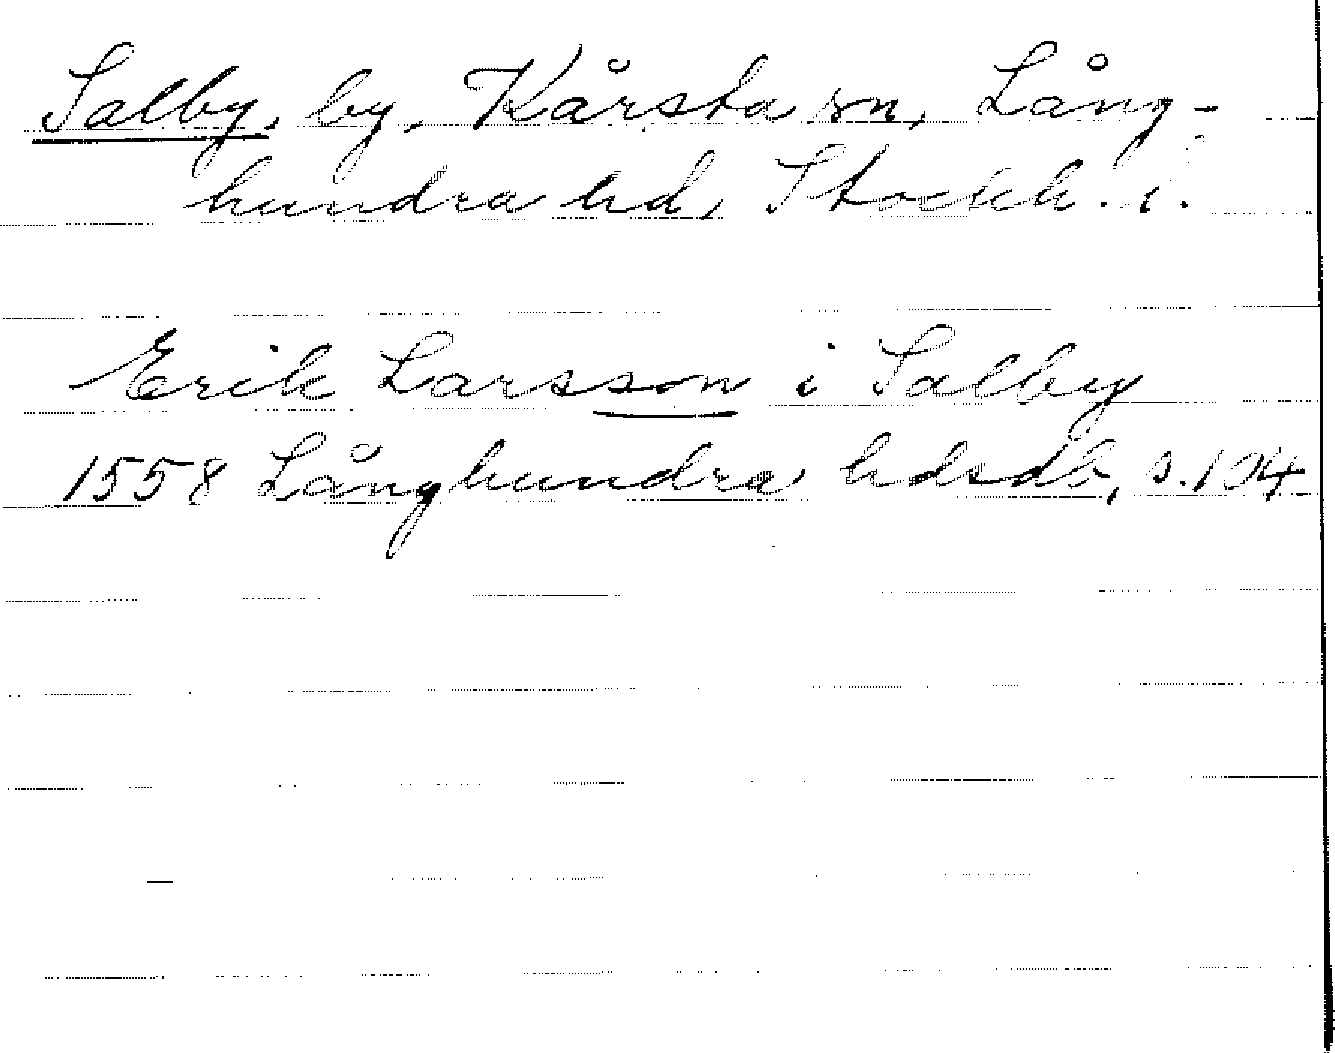 Salby, by, Kårsta sn, Lång-
hundra hd, Stockh. l.
Erik Larsson i Salby
1558 Långhundra hdsdb, s. 104